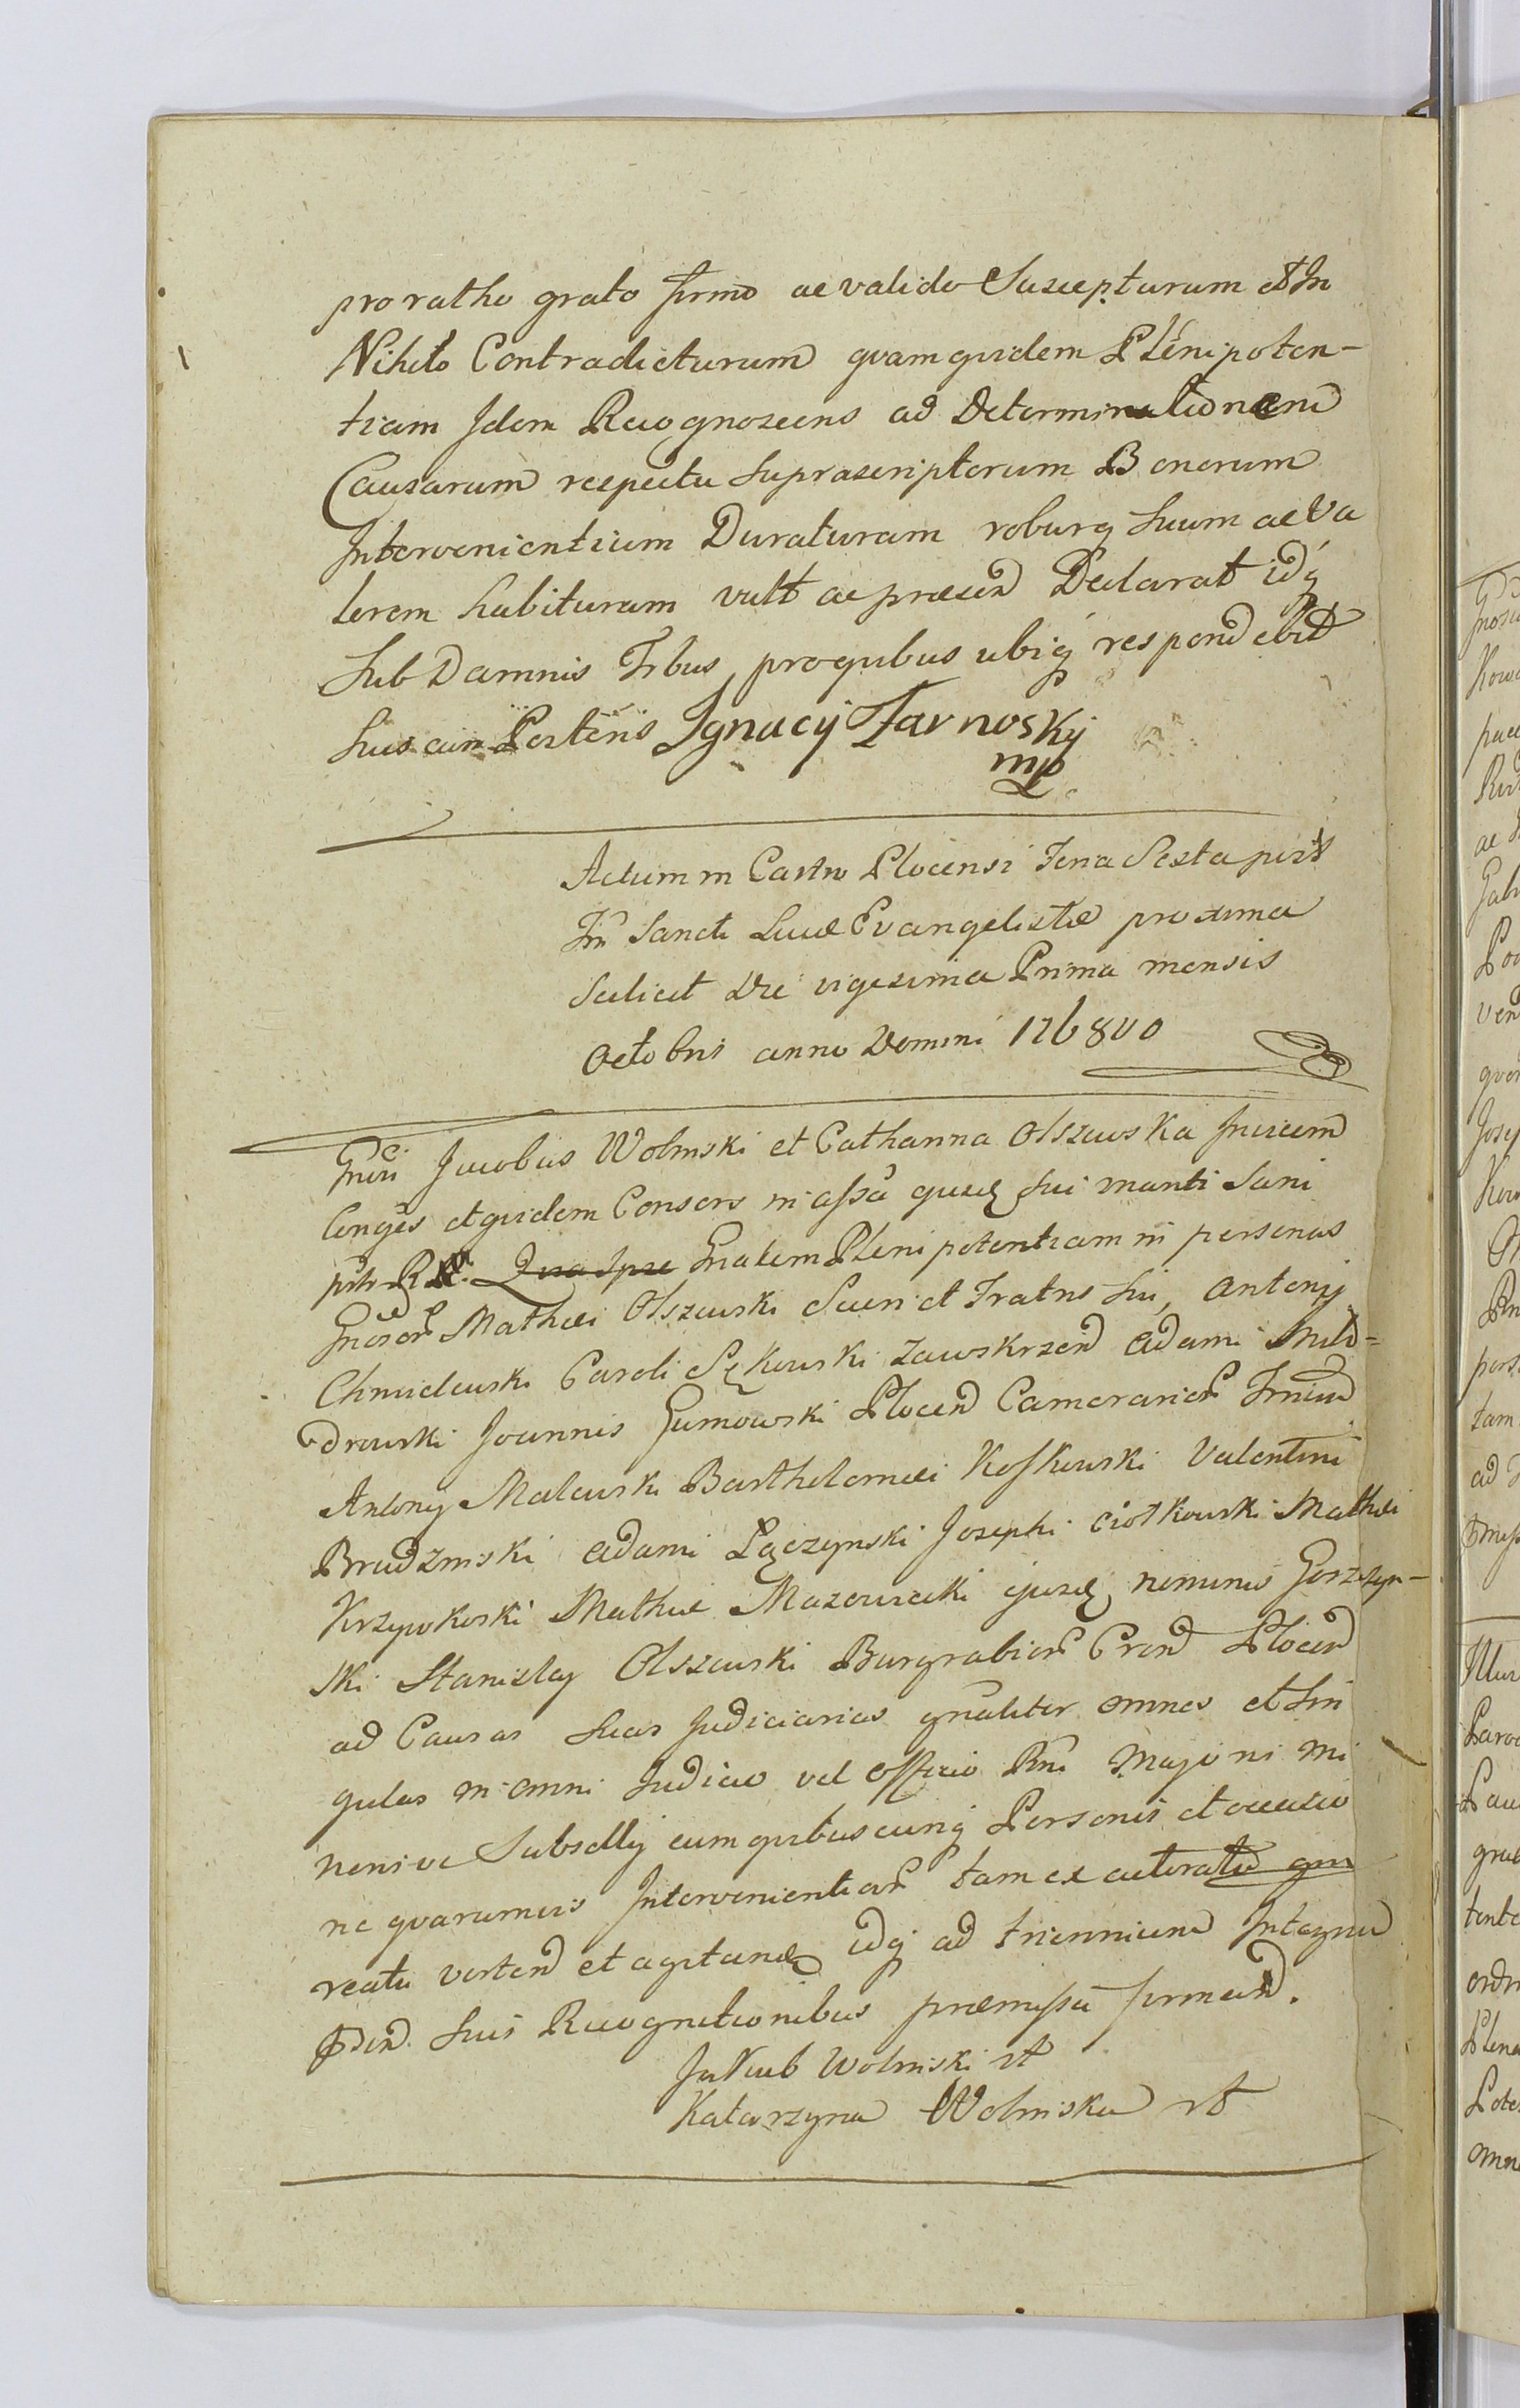 pro ratho grato firmo ac valido Suscepturum et In
Nihilo Contradicturum quamquidem Plenipoten-
tiam Idem Recognoscens ad Determinationem
Causarum respectu Suprascriptorum Bonorum
Intervenientium Duraturam roburq Suum ac Va
lorem habituram vult ac præsen Declarat idq
Sub Damnis Trbus, proquibus ubiq respondebit
Suis cum Posteris Ignacÿ Tarnoskÿ
mp
Actum in Castro Plocensi Feria Sexta post
Fm Sancti Lucæ Evangelistæ proxima
Scilicet Die vigesima Prima mensis
Octobris anno Domini 176800
Gnsi Jacobus Wolinski et Catharina Olszewska Invicem
Conges et quidem Consors in assa ejusd sui mariti Sani
pth R Gnalem Plenipotentiam in personas
Gnosor Mathæi Olszewski Soceri et Fratris Sui, Antonij
Chmielewski Caroli Sękowski Zawskrzen Adami Milo-
drowski Joannis Gumowski Plocen Camerarior Frnin
Antony Malewski Bartholomæi Koskowski Valentini
Brudzinski Adami Łączynski Josephi Ciołkowski Mathæi
Krzywkoski Mathiæ Mazowiecki ejusd nominis Goszczyn-
ski Stanislay Olszewski Burgrabior Cren Plocen
ad Causas Suas Judiciarias gnaliter omnes et Sin
gulas in omni Judicio vel Officio Rni Majoris mi
norisve Subsellij cum quibuscunq Personis et occasio
ne quarumvis Intervenientiar tam ex actoratu qm
reatu verten et agitand idq ad triennium Integrum
Suis Recognitionibus præmissa firman.
Jakub Wolinski
Katarzyna Wolinska